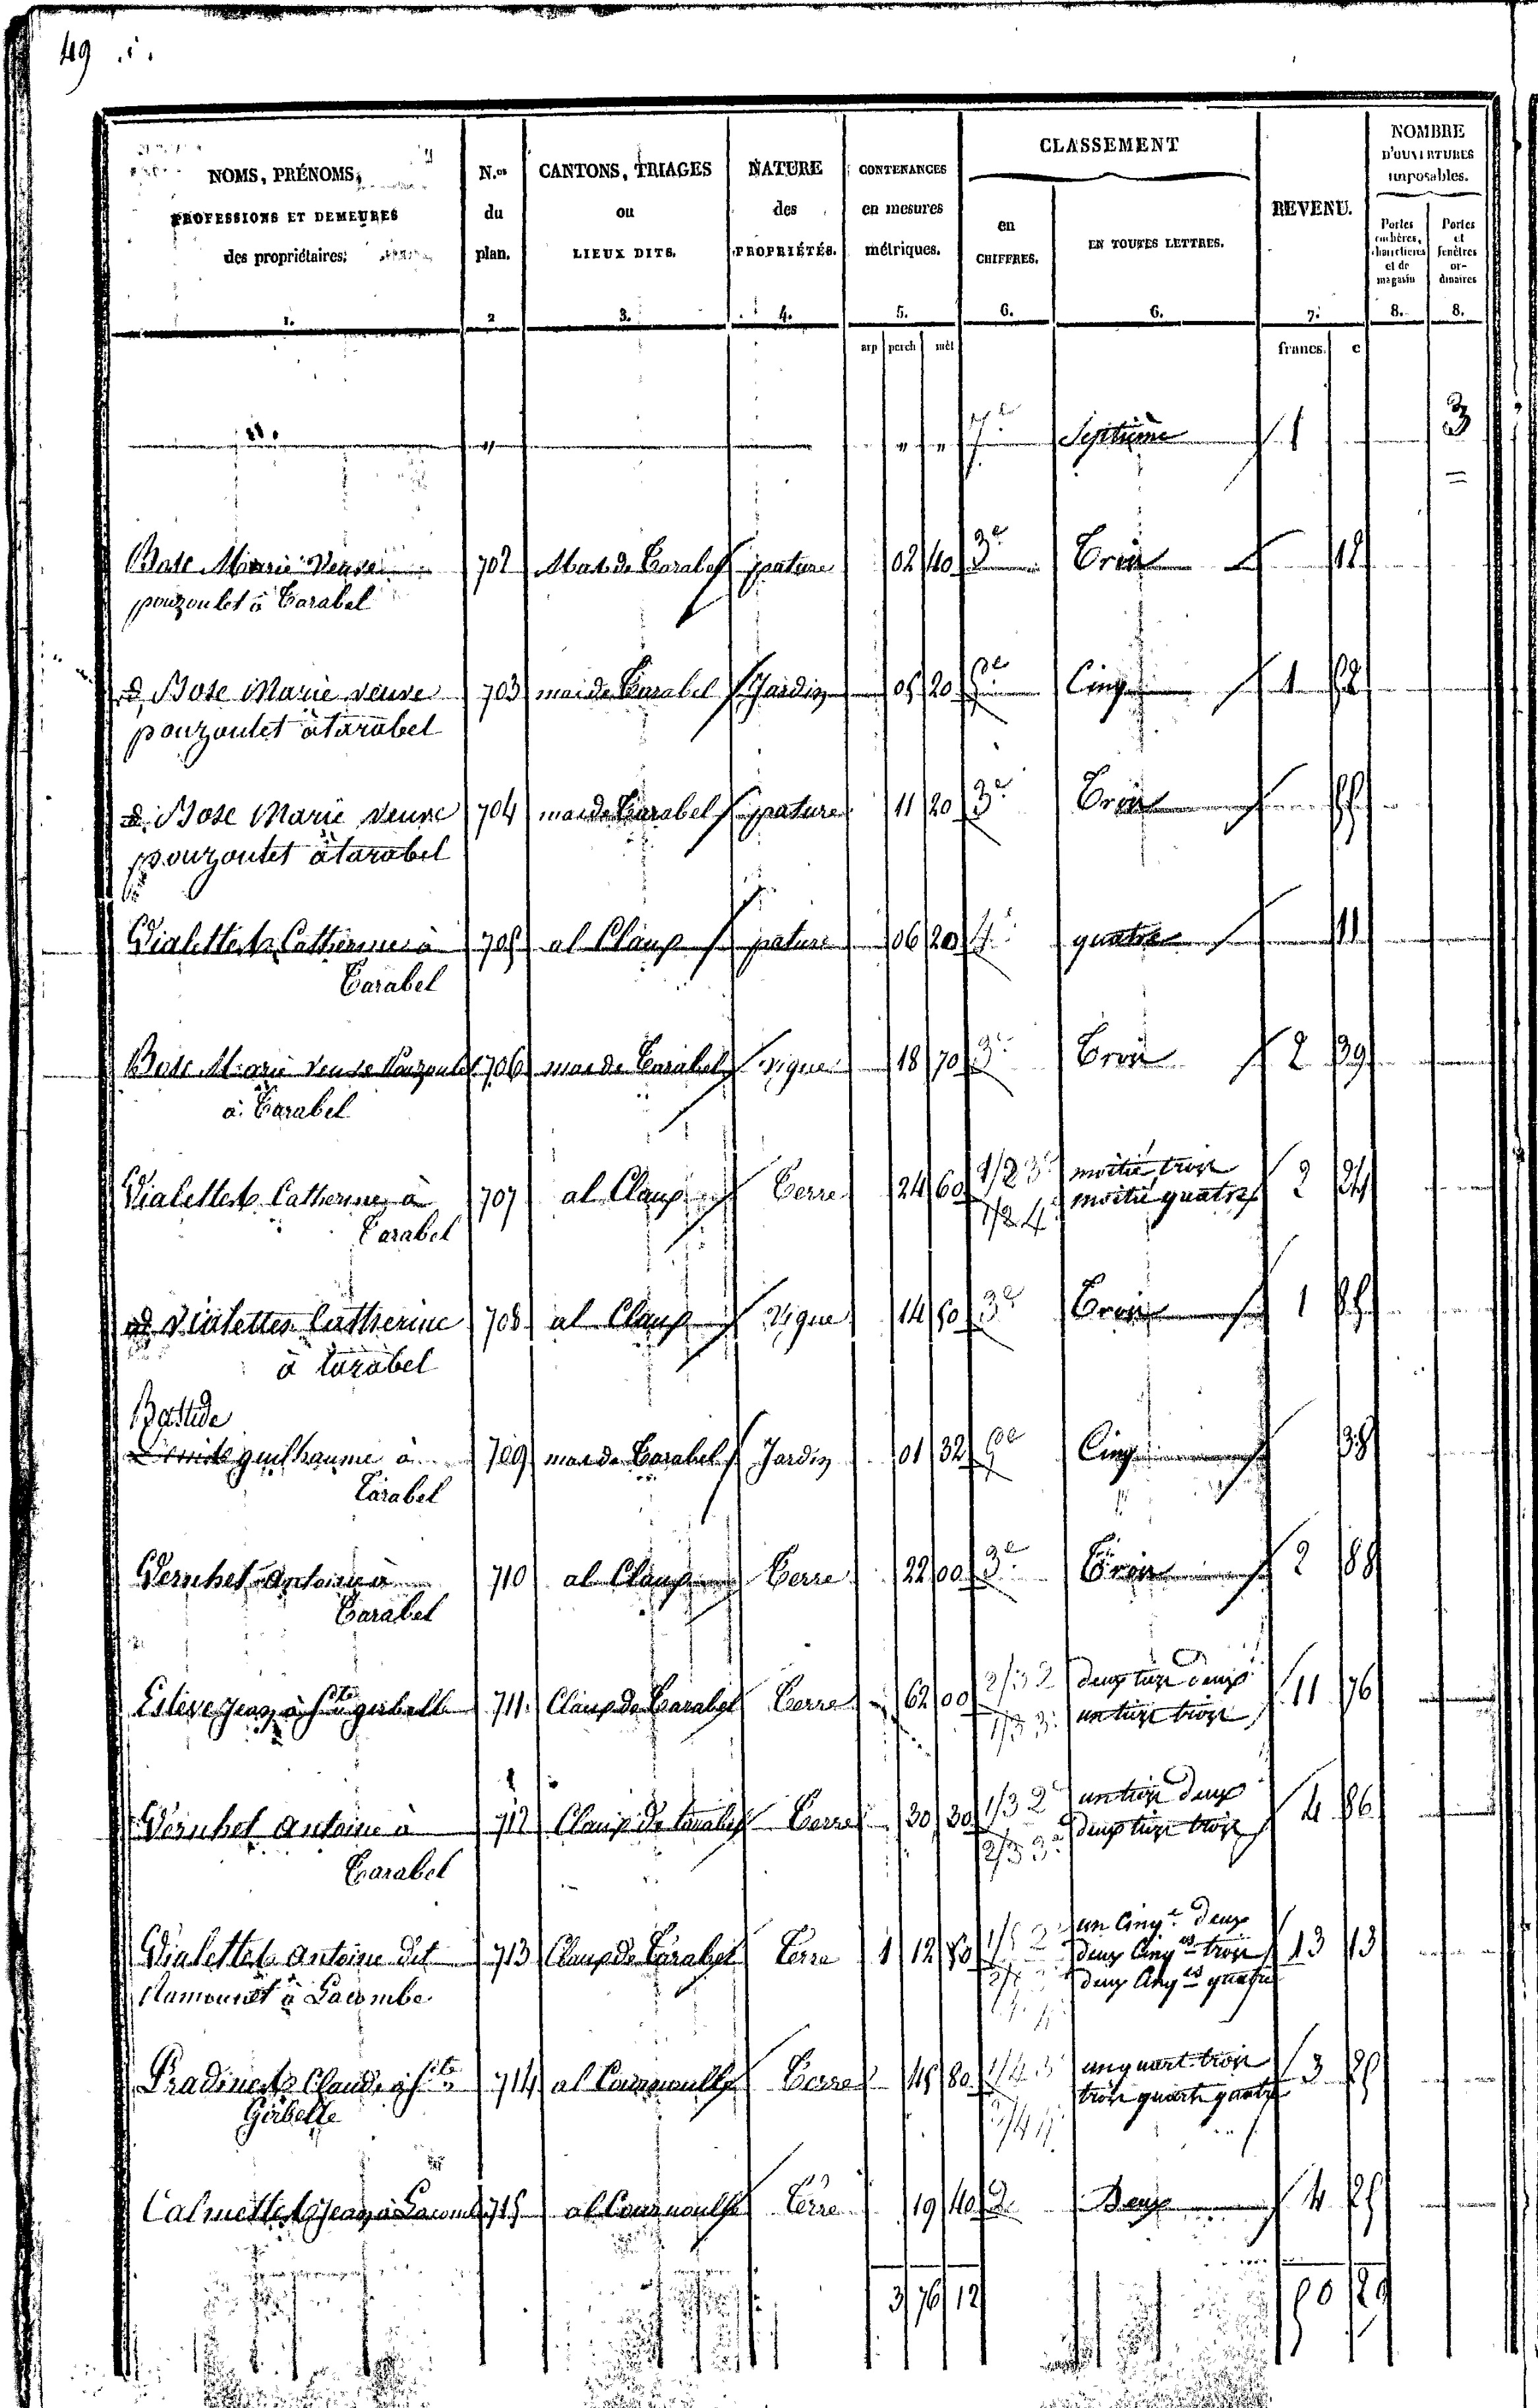 49
NOMS, PRÉNOMS,
PROFESSIONS ET DEMEURES
des propriétaires.
1.
N.os
du
plan.
2
CANTONS, TRIAGES
ou
LIEUX DITS.
3.
NATURE
des
PROPRIÉTÉS.
4.
CONTENANCES
en mesures
métriques.
5.
CLASSEMENT
en
CHIFFRES.
6.
EN TOUTES LETTRES.
6.
REVENU.
7.
NOMBRE
D'OUVERTURES
imposables.
Portes
cochères,
charretières
et de
magasin
8.
Portes
et
fenêtres
or-
dinaires
8.
arp perch mèt
francs. c
" " " 7e Septième 1 3
Bosc Marie Veuve 702 Mas de Tarabel pature 02 40 3e Trois 12
pouzoulet à Tarabel
d. Bosc Marie veuve 703 mas de Tarabel Jardin 05 20 5e Cinq 1 52
pouzoulet à tarabel
d. Bosc Marie Veuve 704 mas de Tarabel pature 11 20 3e Trois 55
pouzoulet à tarabel
Vialettes Catherine à 705 al Claux pature 06 20 4e quatre 11
Tarabel
Bosc Marie Veuve Pouzoulet 706 mas de Tarabel vigne 18 70 3e Trois 2 39
à Tarabel
Vialettes Catherine à 707 al Claux Terre 24 60 1/2 3e moitié trois 2 24
1/2 4e moitié quatre
Tarabel
d. Vialettes Catherine 708 al Claux Vigne 14 50 3e Trois 1 85
à tarabel
Bastide
guilhaume à 709 mas de Tarabel Jardin 01 32 5e Cinq 38
Tarabel
Vernhet Antoine à 710 al Claux Terre 22 00 3e Trois 2 88
Tarabel
Estève Jean à Ste girbelle 711 Claux de Tarabel Terre 62 00 2/3 2e deux tiers deux 11 76
1/3 3e un tiers trois
Vernhet Antoine à 712 Claux de tarabel Terre 30 30 1/3 2e un tiers deux 4 86
2/3 3e deux tiers trois
Tarabel
Vialettes Antoine dit 713 Claux de Tarabel Terre 1 12 80 1/5 2e un Cinqe deux 13 13
deux Cinqes trois
Ramounet à Lacombe deux Cinqes quatre
Pradines Claude à Ste 714 al Cournoulhe Terre 45 80 1/4 3e un quart trois 3 25
Girbelle 3/4 4e trois quarts quatre
Calmettes Jean à Lacombe 715 al Cournoulhe Terre 19 40 2e Deux 4 25
3 76 12 50 29